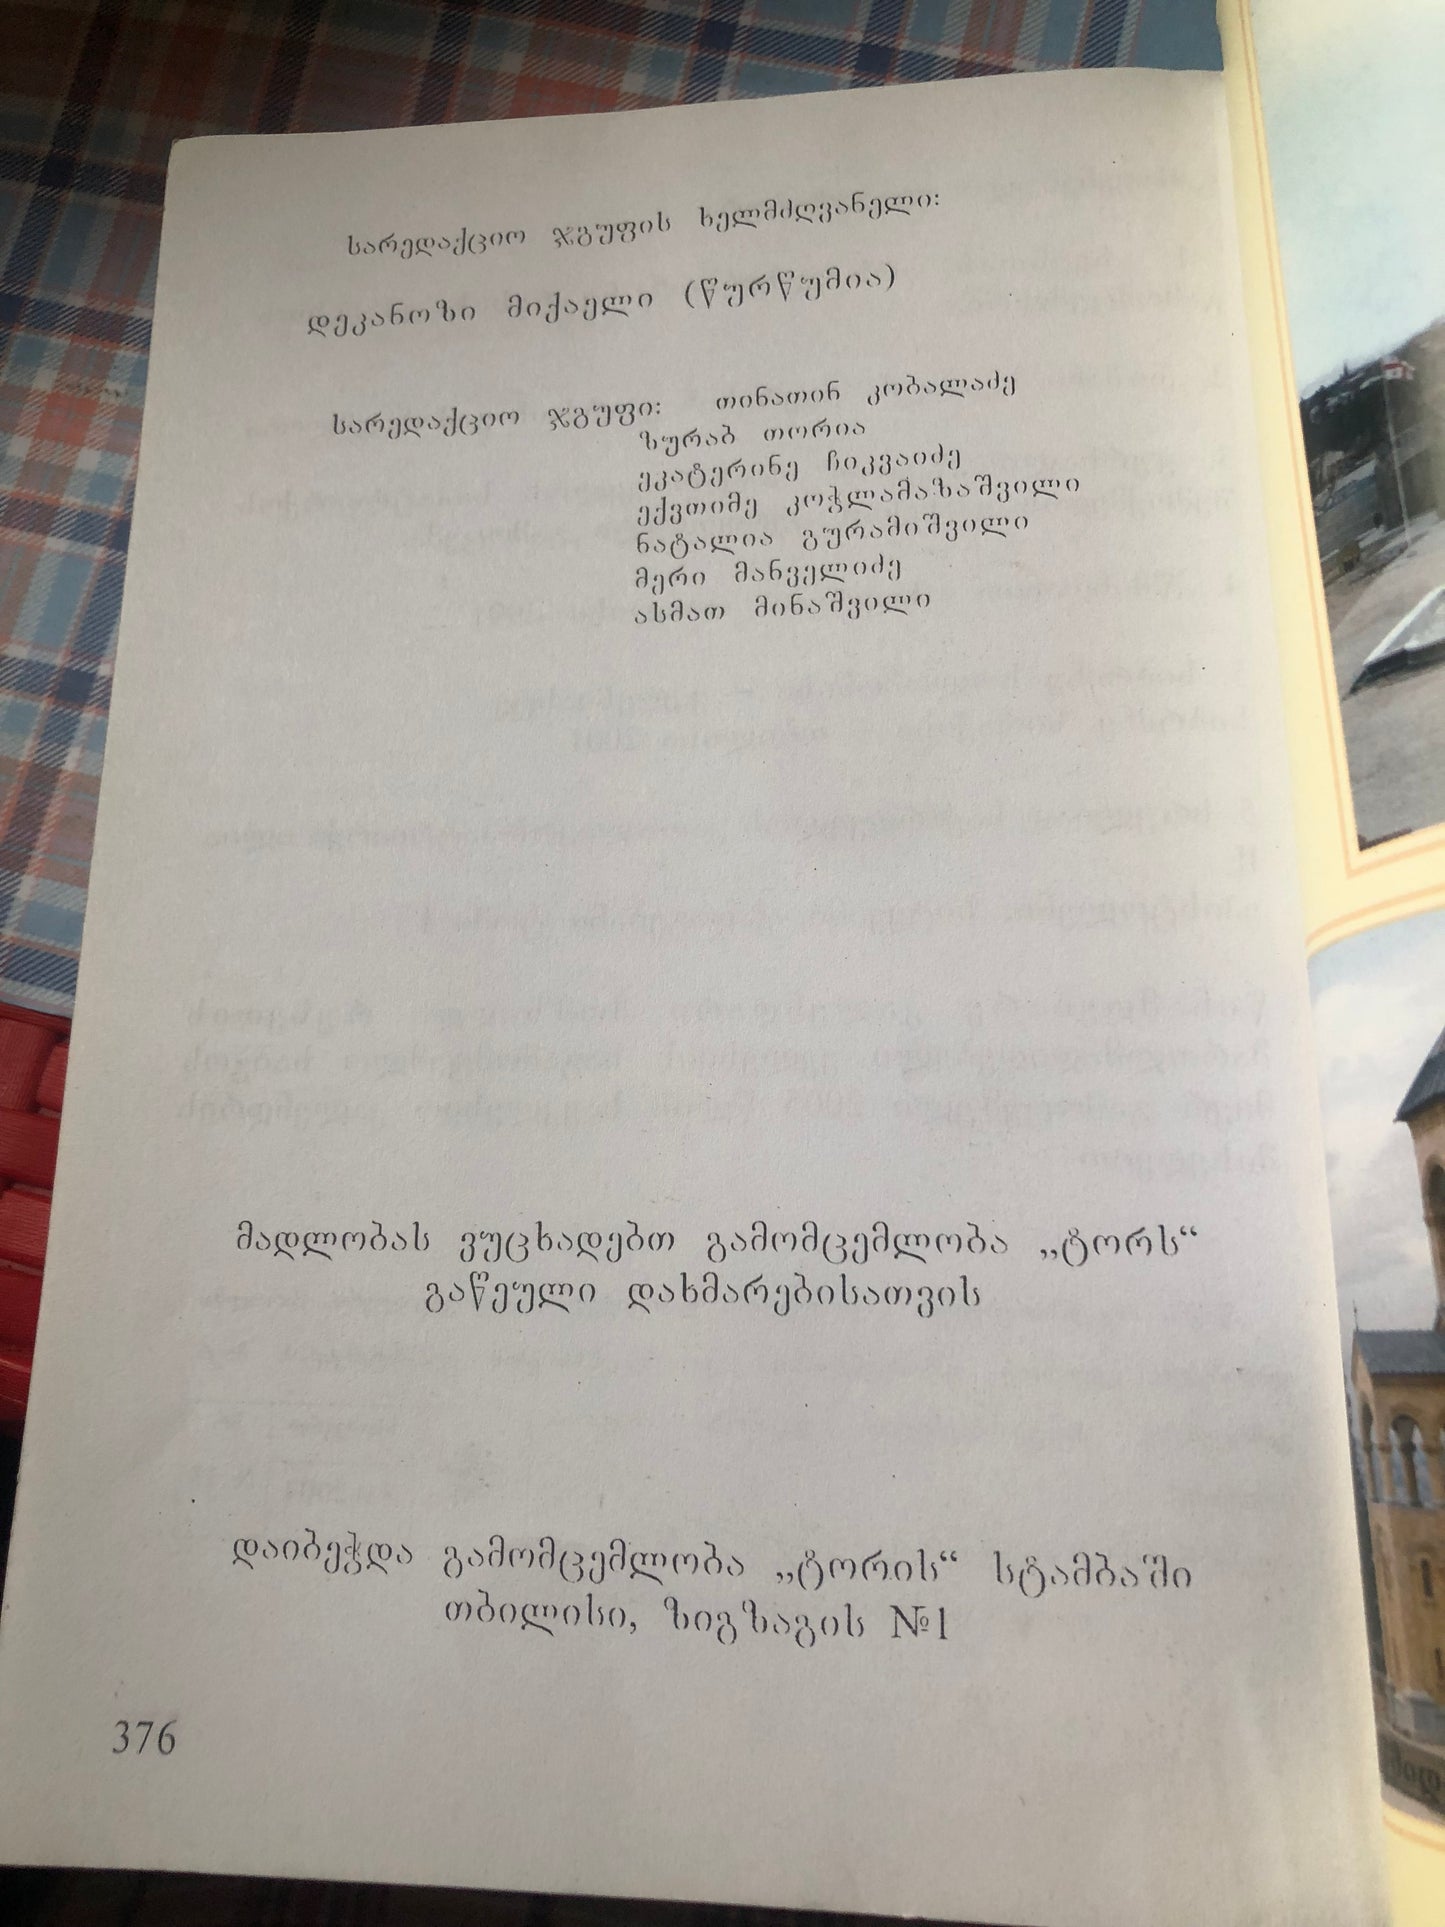 სარედაქციო ჯგუფის ხელმძღვანელი:
დეკანოზი მიქაელი (წურწუმია)
სარედაქციო ჯგუფი: თინათინ კობალაძე
ზურაბ თორია
ეკატერინე ჩიკვაიძე
ექვთიმე კოჭლამაზაშვილი
ნატალია გურამიშვილი
მერი მანველიძე
ასმათ მინაშვილი
მადლობას ვუცხადებთ გამომცემლობა „ტორს“
გაწეული დახმარებისათვის
დაიბეჭდა გამომცემლობა „ტორის“ სტამბაში
თბილისი, ზიგზაგის №1
376